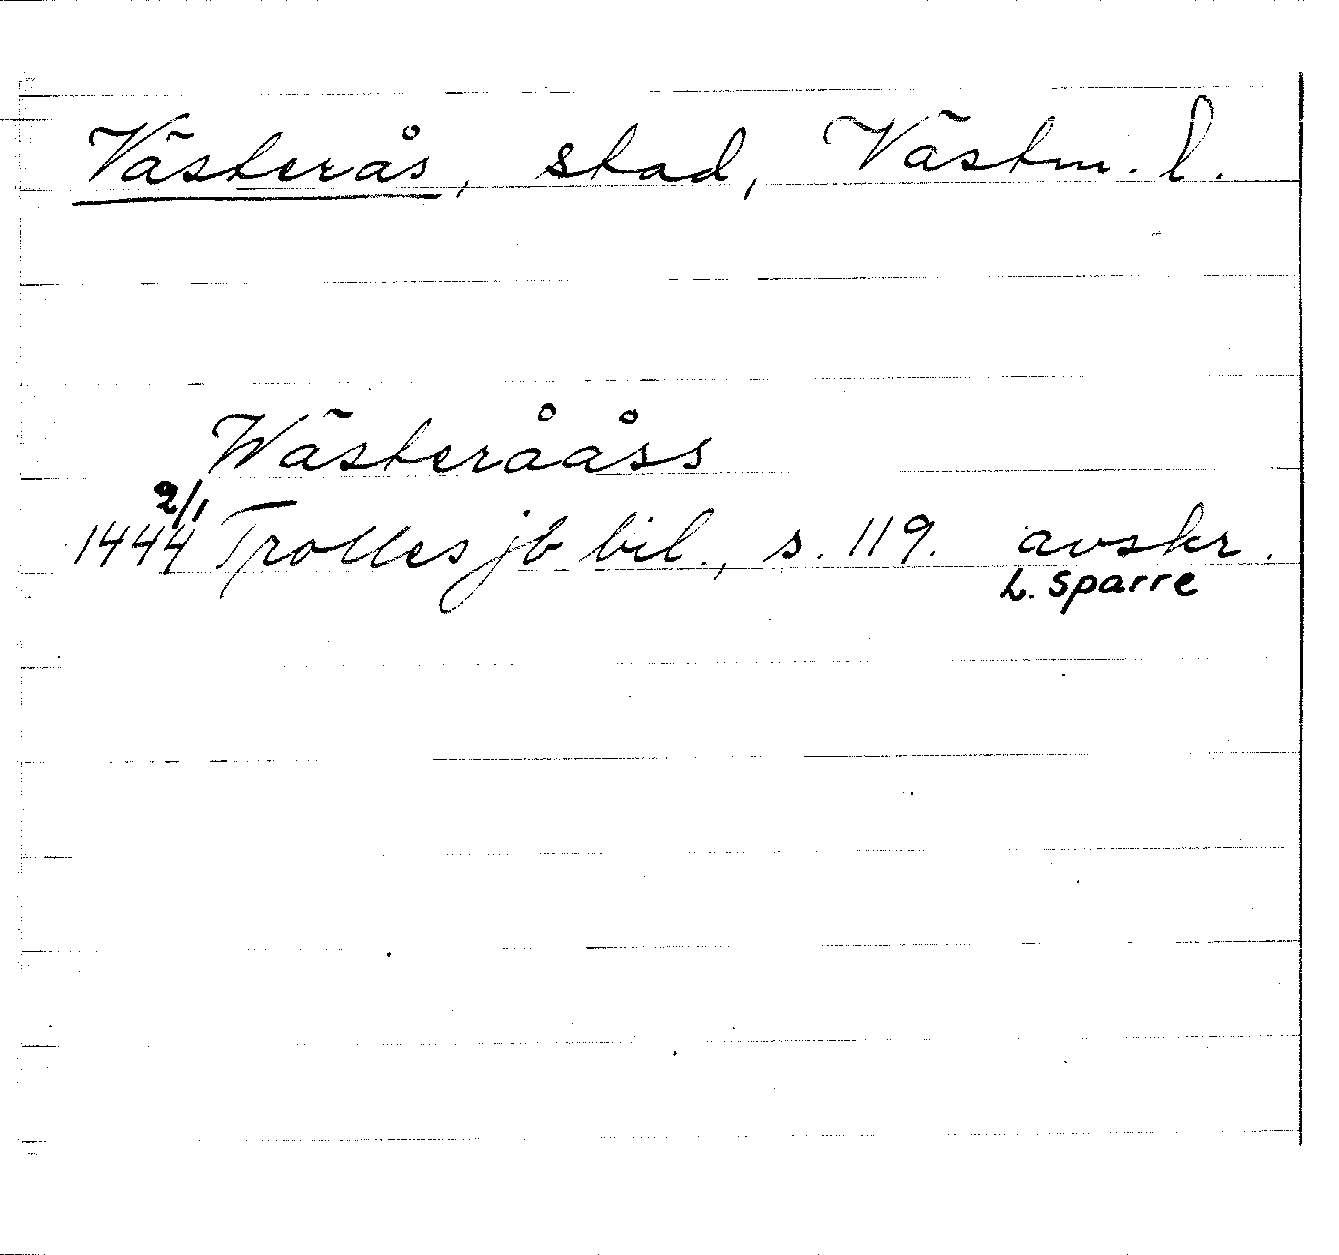 Västerås, stad, Västm. l.
Wästerååss
2/1
1444 Trolles jb bil., s. 119. avskr.
L. Sparre